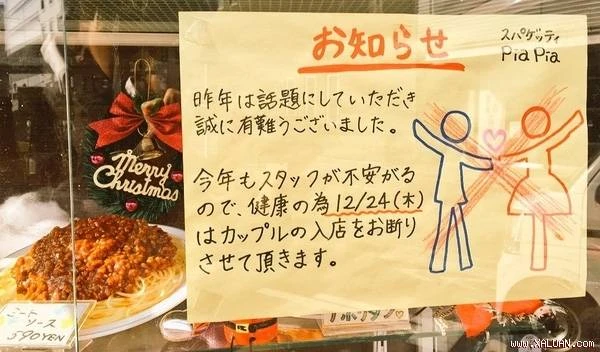 お知らせ
スパゲッティ
PiaPia
昨年は話題にしていただき
誠に有難うございました。
今年もスタッフが不安がる
ので、健康の為12/24(木)
はカップルの入店をお断り
させて頂きます。
Merry
Christmas
ミート
ソース
590YEN
www.XALUAN.com